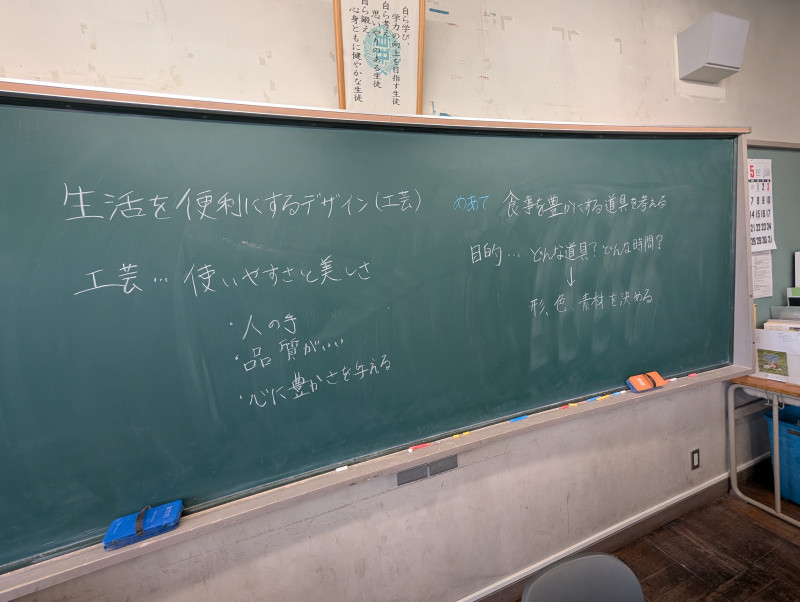 自ら学び、
学力の向上を目指す生徒
自ら考え、
思いやりのある生徒
自ら鍛え、
心身ともに健やかな生徒
生活を便利にするデザイン(工芸)
工芸…使いやすさと美しさ
・人の手
・品質がいい
・心に豊かさを与える
めあて 食事を豊かにする道具を考える
目的… どんな道具?どんな時間?
↓
形、色、素材を決める
5